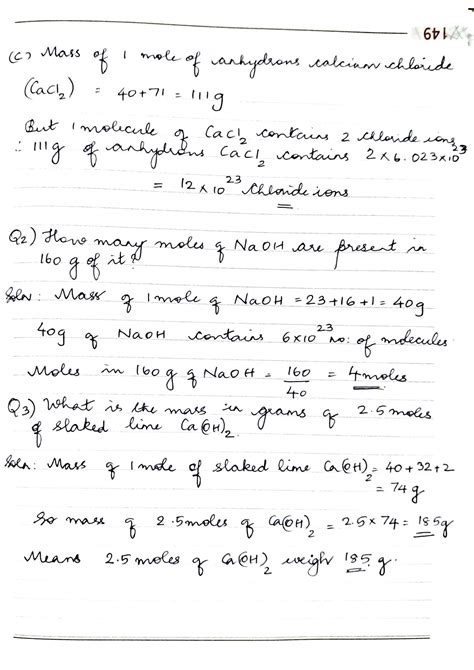 149
(c) Mass of 1 mole of anhydrons calcium chloride
(CaCl₂) = 40+71 = 111g
But 1 molecule of CaCl₂ contains 2 chloride ions
∴ 111g of anhydrons CaCl₂ contains 2×6.023×10²³
= 12×10²³ chloride ions
Q2) How many moles of NaOH are present in
160 g of it?
Soln: Mass of 1 mole of NaOH = 23+16+1 = 40g
40g of NaOH contains 6×10²³ no: of molecules
Moles in 160 g of NaOH = 160/40 = 4 moles
Q3) What is the mass in grams of 2.5 moles
of slaked lime Ca(OH)₂.
Soln: Mass of 1 mole of slaked lime Ca(OH)₂ = 40+32+2
= 74 g
So mass of 2.5 moles of Ca(OH)₂ = 2.5×74 = 185g
Means 2.5 moles of Ca(OH)₂ weigh 185 g.